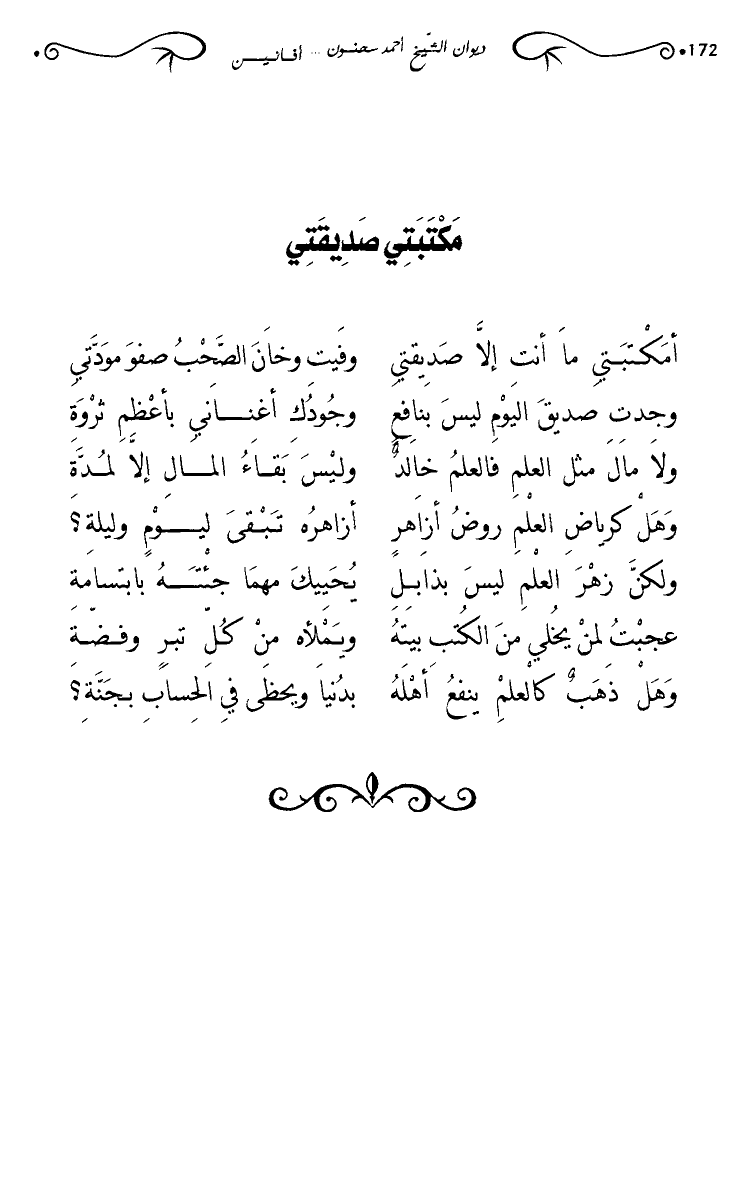 172 ديوان الشّيخ أحمد سحنون ... أفانين
مَكْتَبَتِي صَدِيقَتِي
أمَكْتَبَتي ماَ أنتِ إلاَّ صَدِيقتي وفَيت وخانَ الصَّحْبُ صفوَ موَدَّتي
وجدت صديقَ اليوْمِ ليسَ بنافعٍ وجُودُكِ أغناني بأعْظمِ ثرْوَة
ولاَ مالَ مثل العلمِ فالعلمُ خالدٌ وليْسَ بَقاءُ المالِ إلاَّ لمُدَّة
وَهَلْ كرياضِ العلْمِ روضُ أزاهرٍ أزاهرُه تَبْقىَ ليوْمٍ وليلة؟
ولكنَّ زهْرَ العلْمِ ليسَ بذابلِ يُحَييكَ مهمَا جئْتَهُ بابتسامة
عجبْتُ لمنْ يخْلي منَ الكتبِ بيتهُ ويَمْلأه منْ كُلّ تبرٍ وفضّة
وَهَلْ ذَهَبٌ كالْعلمِ ينفعُ أهْلهُ بدُنيا ويحظَى في الحِسابِ بجَنَّةِ؟